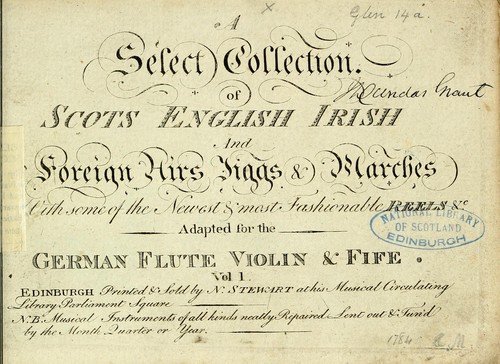 Glen 14a.
A
Select Collection.
of
J Dundas Grant
SCOTS ENGLISH IRISH
And
Foreign Airs Jiggs & Marches
With some of the Newest & most Fashionable REELS &c
NATIONAL LIBRARY
OF SCOTLAND
EDINBURGH
Adapted for the
GERMAN FLUTE VIOLIN & FIFE.
Vol 1.
EDINBURGH Printed & Sold by N. STEWART at his Musical Circulating
Library Parliament Square
N.B. Musical Instruments of all kinds neatly Repaired Lent out & Tun'd
by the Month Quarter or Year.
1784